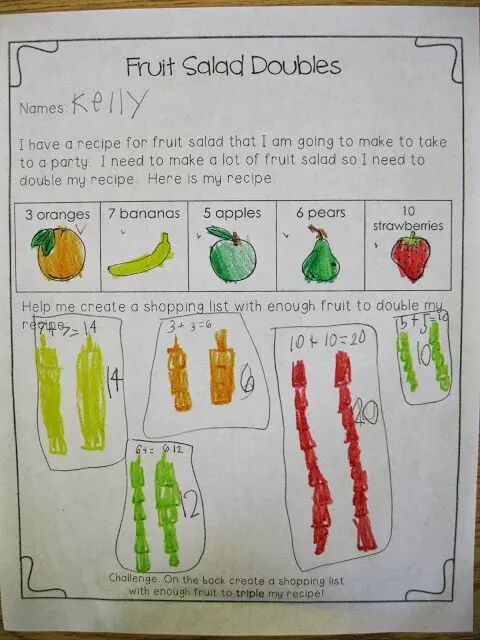 Fruit Salad Doubles
Names: Kelly
I have a recipe for fruit salad that I am going to make to take
to a party. I need to make a lot of fruit salad so I need to
double my recipe. Here is my recipe.
3 oranges
7 bananas
5 apples
6 pears
10
strawberries
Help me create a shopping list with enough fruit to double my
recipe.
7+7=14
14
3+3=6
6
10+10=20
20
5+5=10
10
6+= 612
12
Challenge: On the back create a shopping list
with enough fruit to triple my recipe!